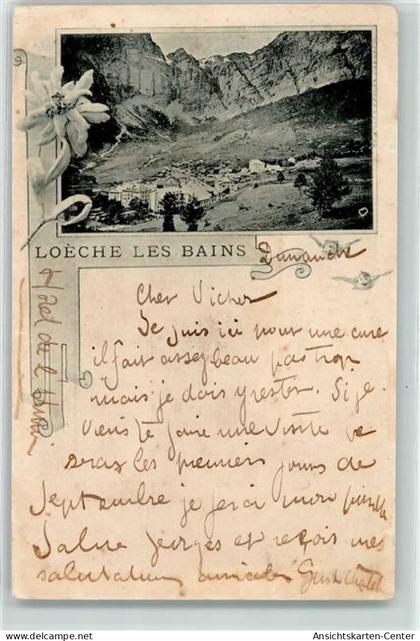 LOÈCHE LES BAINS
Dimanche
Hotel de l'
Cher Vicher
Je suis ici pour une cure
il fait assez beau pas trop
mais je dois y rester. Si je
viens te faire une visite ce
seras les premiers jours de
Septembre je ferai mon possible
Salue Georges et reçois mes
salutations amicales
© Ansichtskarten-Center